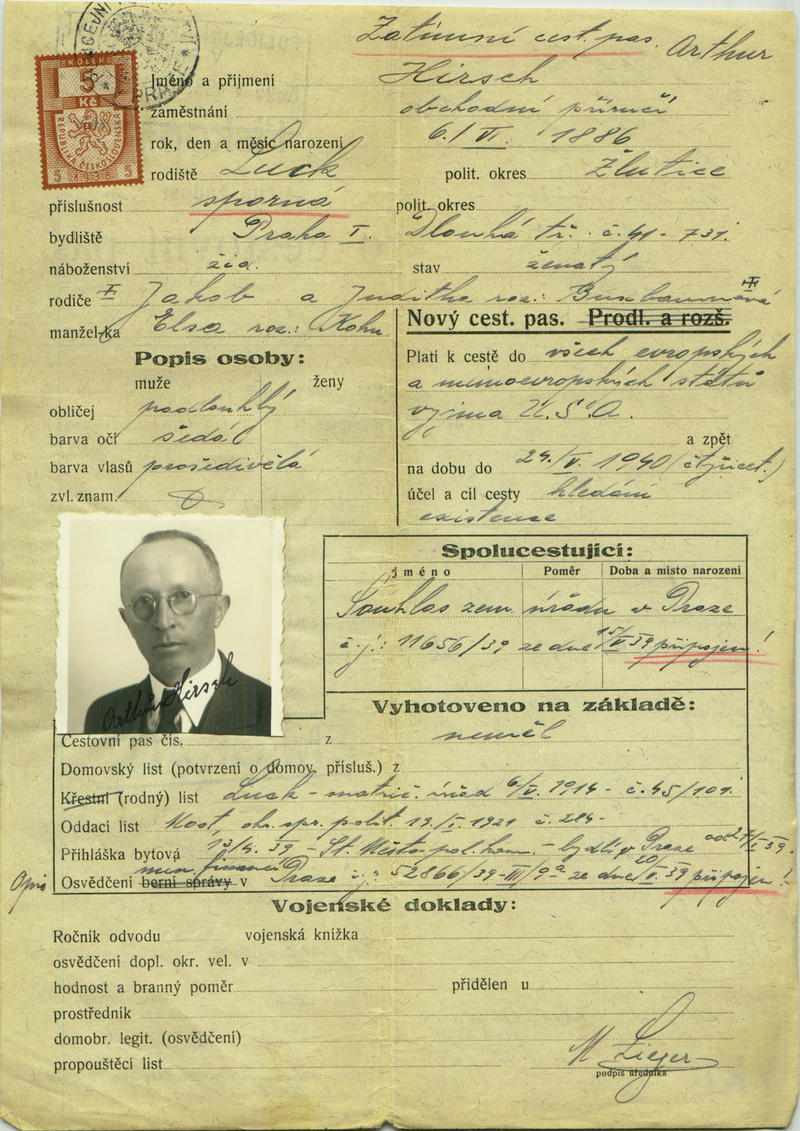 Zatímní cest. pas. Arthur
Jméno a příjmení Hirsch
zaměstnání obchodní příručí
rok, den a měsíc narození 6./VI. 1886
rodiště Luck polit. okres Žlutice
příslušnost sporná polit. okres
bydliště Praha I. Dlouhá tř. č. 41 - 731.
náboženství žid. stav ženatý
rodiče Jakob a Juditha roz.:
manžel-ka Elsa roz.: Kohn
KOLEK
5
Kč
REPUBLIKA ČESKOSLOVENSKÁ
5 1938 5
Popis osoby:
muže ženy
obličej podlouhlý
barva očí šedá
barva vlasů prošedivělá
zvl. znam.
Nový cest. pas. Prodl. a rozš.
Platí k cestě do všech evropských
a mimoevropských států
vyjma U.S.A.
a zpět
na dobu do 24./V. 1940 (čtyřicet.)
účel a cíl cesty hledání
existence
Arthur Hirsch
Spolucestující:
Jméno Poměr Doba a místo narození
Souhlas zem. úřadu v Praze
č.j.: 11656/39 ze dne 15/V 39 připojen!
Vyhotoveno na základě:
Cestovní pas čís. z neměl
Domovský list (potvrzení o domov. přísluš.) z
Křestní (rodný) list Luck - matrič. úřad 6/V. 1914 - č. 45/101.
Oddací list Most, okr. spr. polit. 19./I. 1921 č. 284-
Přihláška bytová 13/4. 39 - St. Město pol. kom. - bydlí v Praze od
Osvědčení berní správy min. financí v Praze č.j.: 52866/39-III/9a ze dne 20/V. 39 připojen!
Opis
Vojenské doklady:
Ročník odvodu vojenská knížka
osvědčení dopl. okr. vel. v
hodnost a branný poměr přidělen u
prostředník
domobr. legit. (osvědčení)
propouštěcí list
podpis úředníka